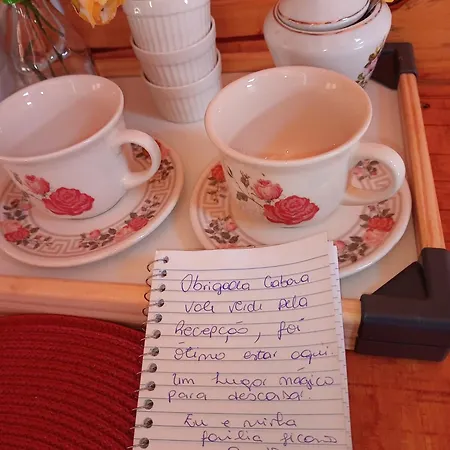 Obrigada Cabana
vale verde pela
Recepção, foi
ótimo estar aqui
um lugar mágico
para descansar.
Eu e minha
família ficamos